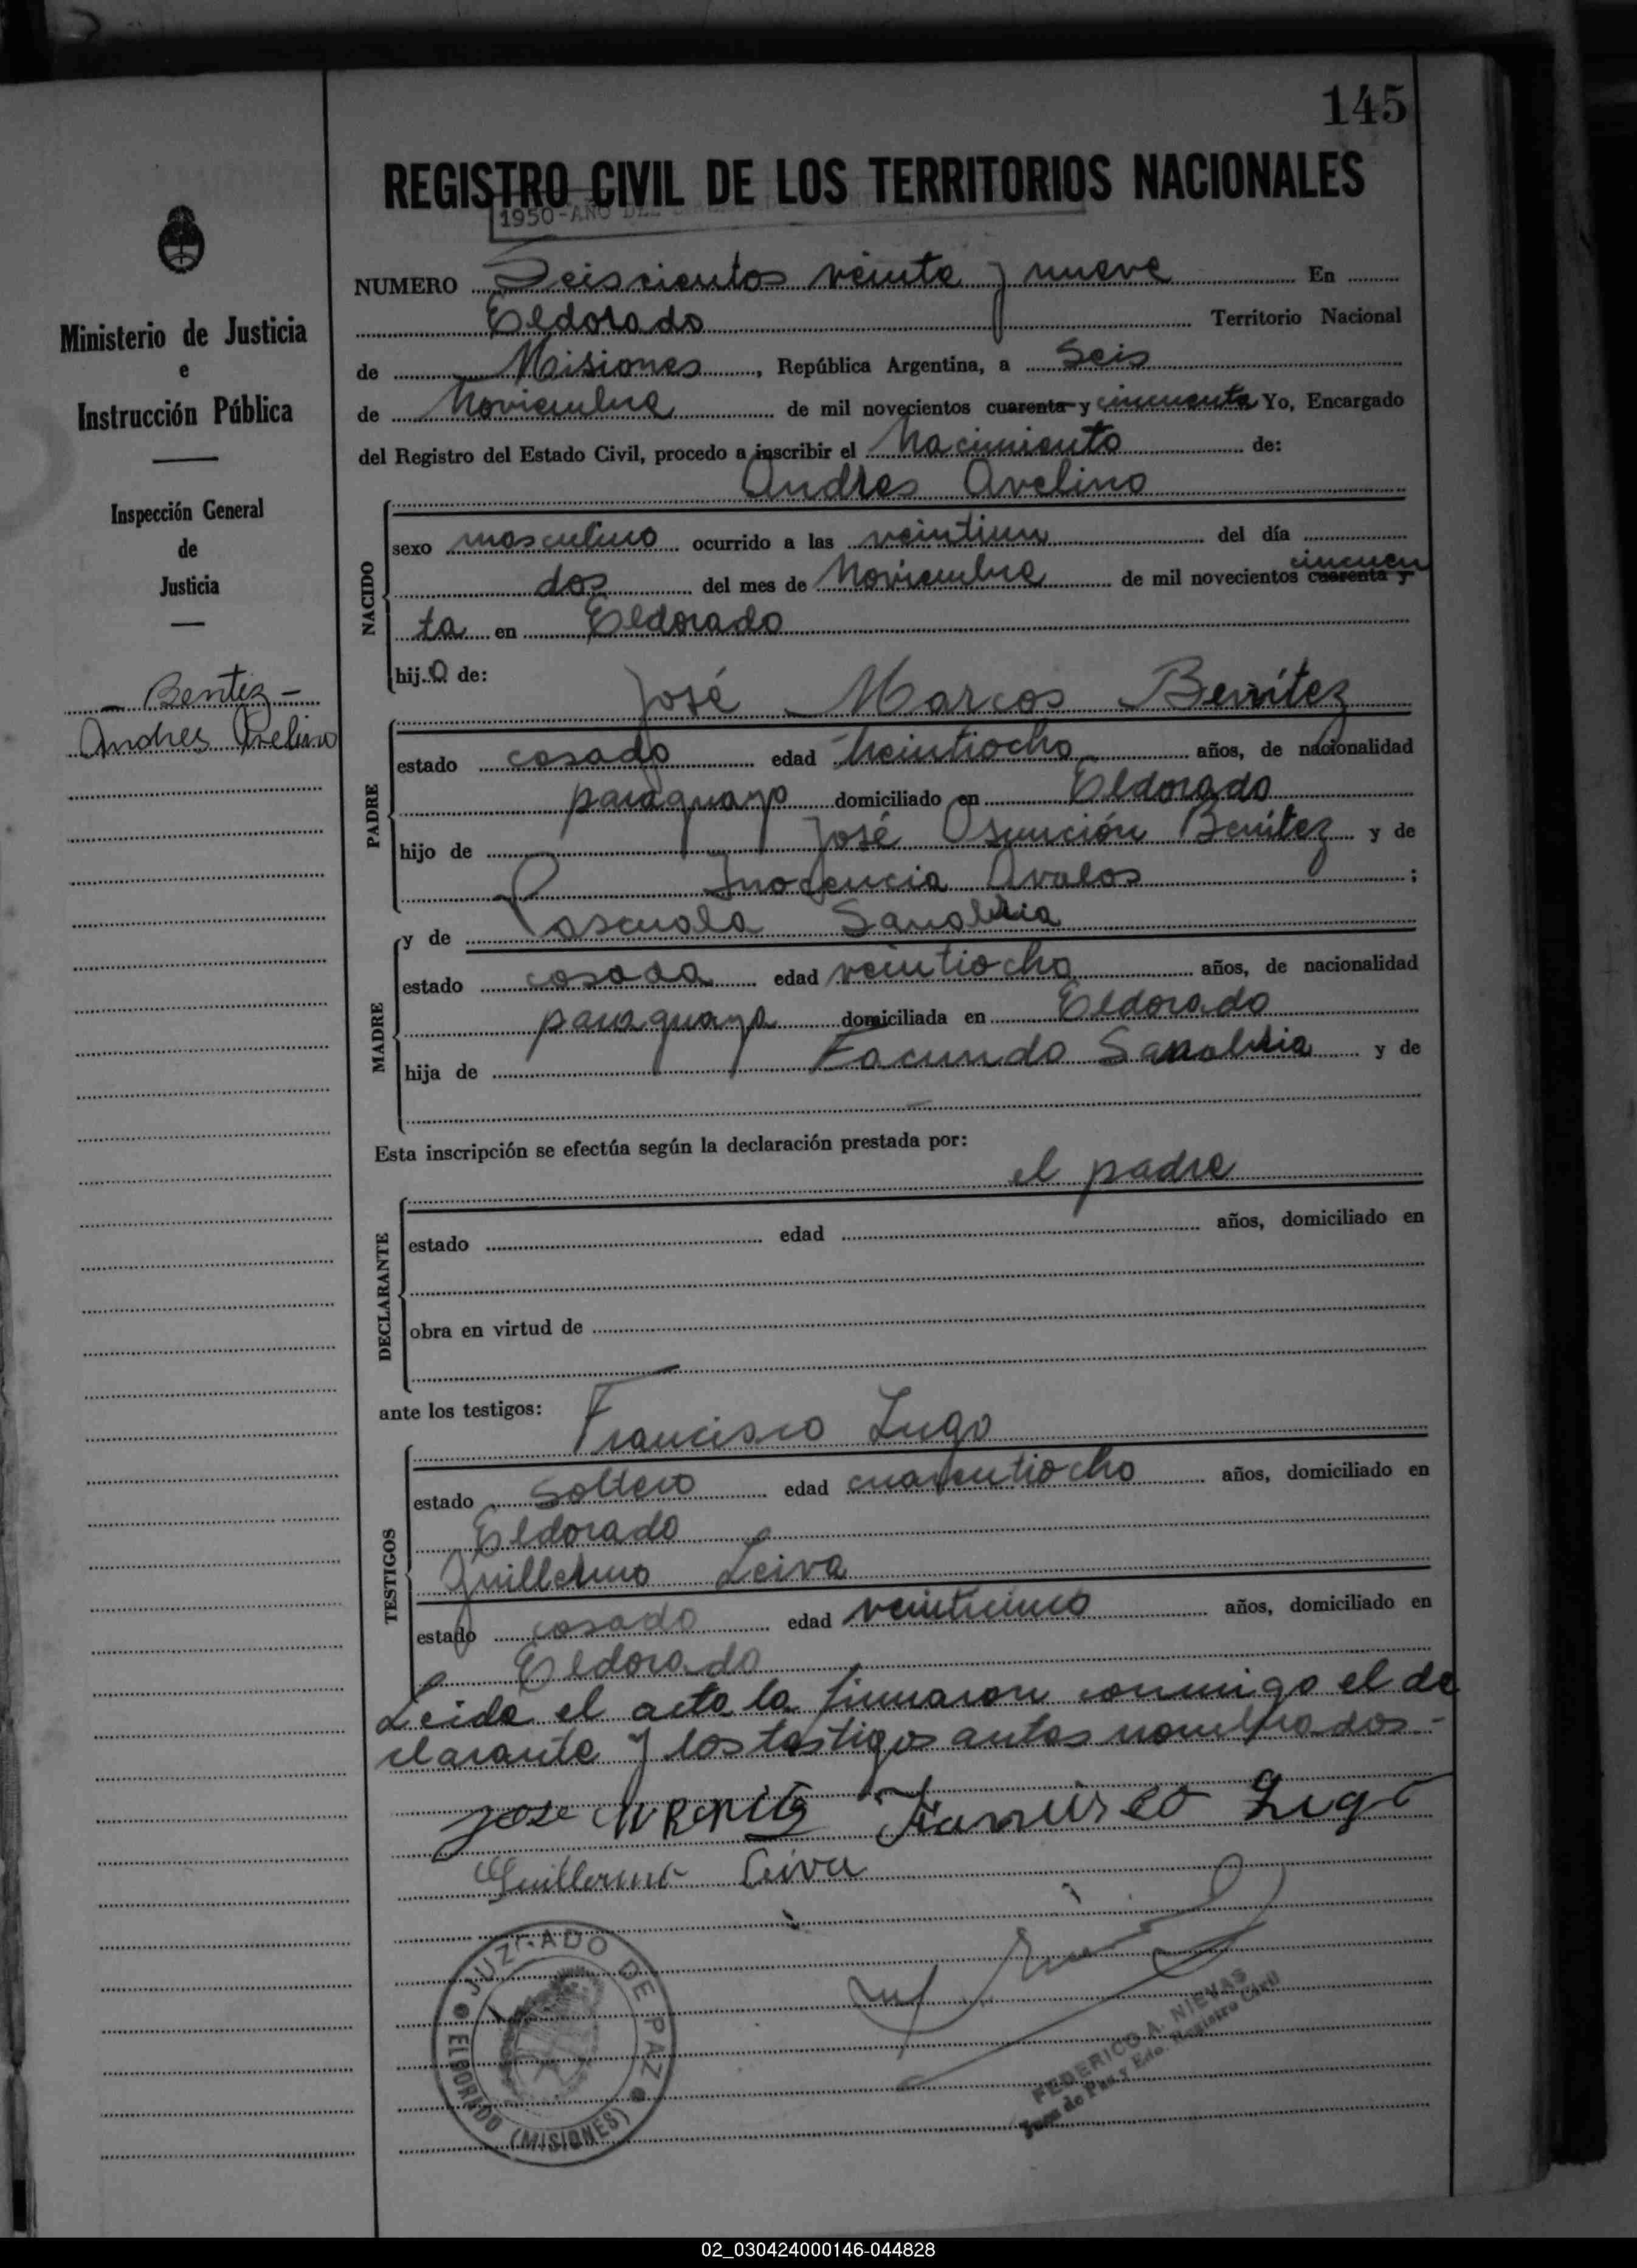 145
REGISTRO CIVIL DE LOS TERRITORIOS NACIONALES
1950-AÑO DEL
Ministerio de Justicia
e
Instrucción Pública
Inspección General
de
Justicia
Benitez -
Andres Avelino
NUMERO Seiscientos veinte y nueve En
Eldorado Territorio Nacional
de Misiones, República Argentina, a Seis
de Noviembre de mil novecientos cuarenta y cincuenta Yo, Encargado
del Registro del Estado Civil, procedo a inscribir el Nacimiento de:
Andres Avelino
NACIDO
sexo masculino ocurrido a las veintiun del día
dos del mes de Noviembre de mil novecientos cuarenta y cincuen
ta en Eldorado
hijo de:
José Marcos Benítez
PADRE
estado casado edad veintiocho años, de nacionalidad
paraguayo domiciliado en Eldorado
hijo de José Asunción Benítez y de
Inocencia Avalos ;
y de Pascuala Sanabria
MADRE
estado casada edad veintiocho años, de nacionalidad
paraguaya domiciliada en Eldorado
hija de Facundo Sanabria y de
Esta inscripción se efectúa según la declaración prestada por:
el padre
DECLARANTE
estado edad años, domiciliado en
obra en virtud de
ante los testigos:
Francisco Lugo
TESTIGOS
estado Soltero edad cuarentiocho años, domiciliado en
Eldorado
Guillermo Leiva
estado casado edad veinticinco años, domiciliado en
Eldorado
Leida el acta la firmaron conmigo el de
clarante y los testigos antes nombrados.-
Jose Francisco Lugo
Guillermo Leiva
JUZGADO DE PAZ
ELDORADO (MISIONES)
FEDERICO A. NIEVAS
Juez de Paz y Edo. Registro Civil
02_030424000146-044828